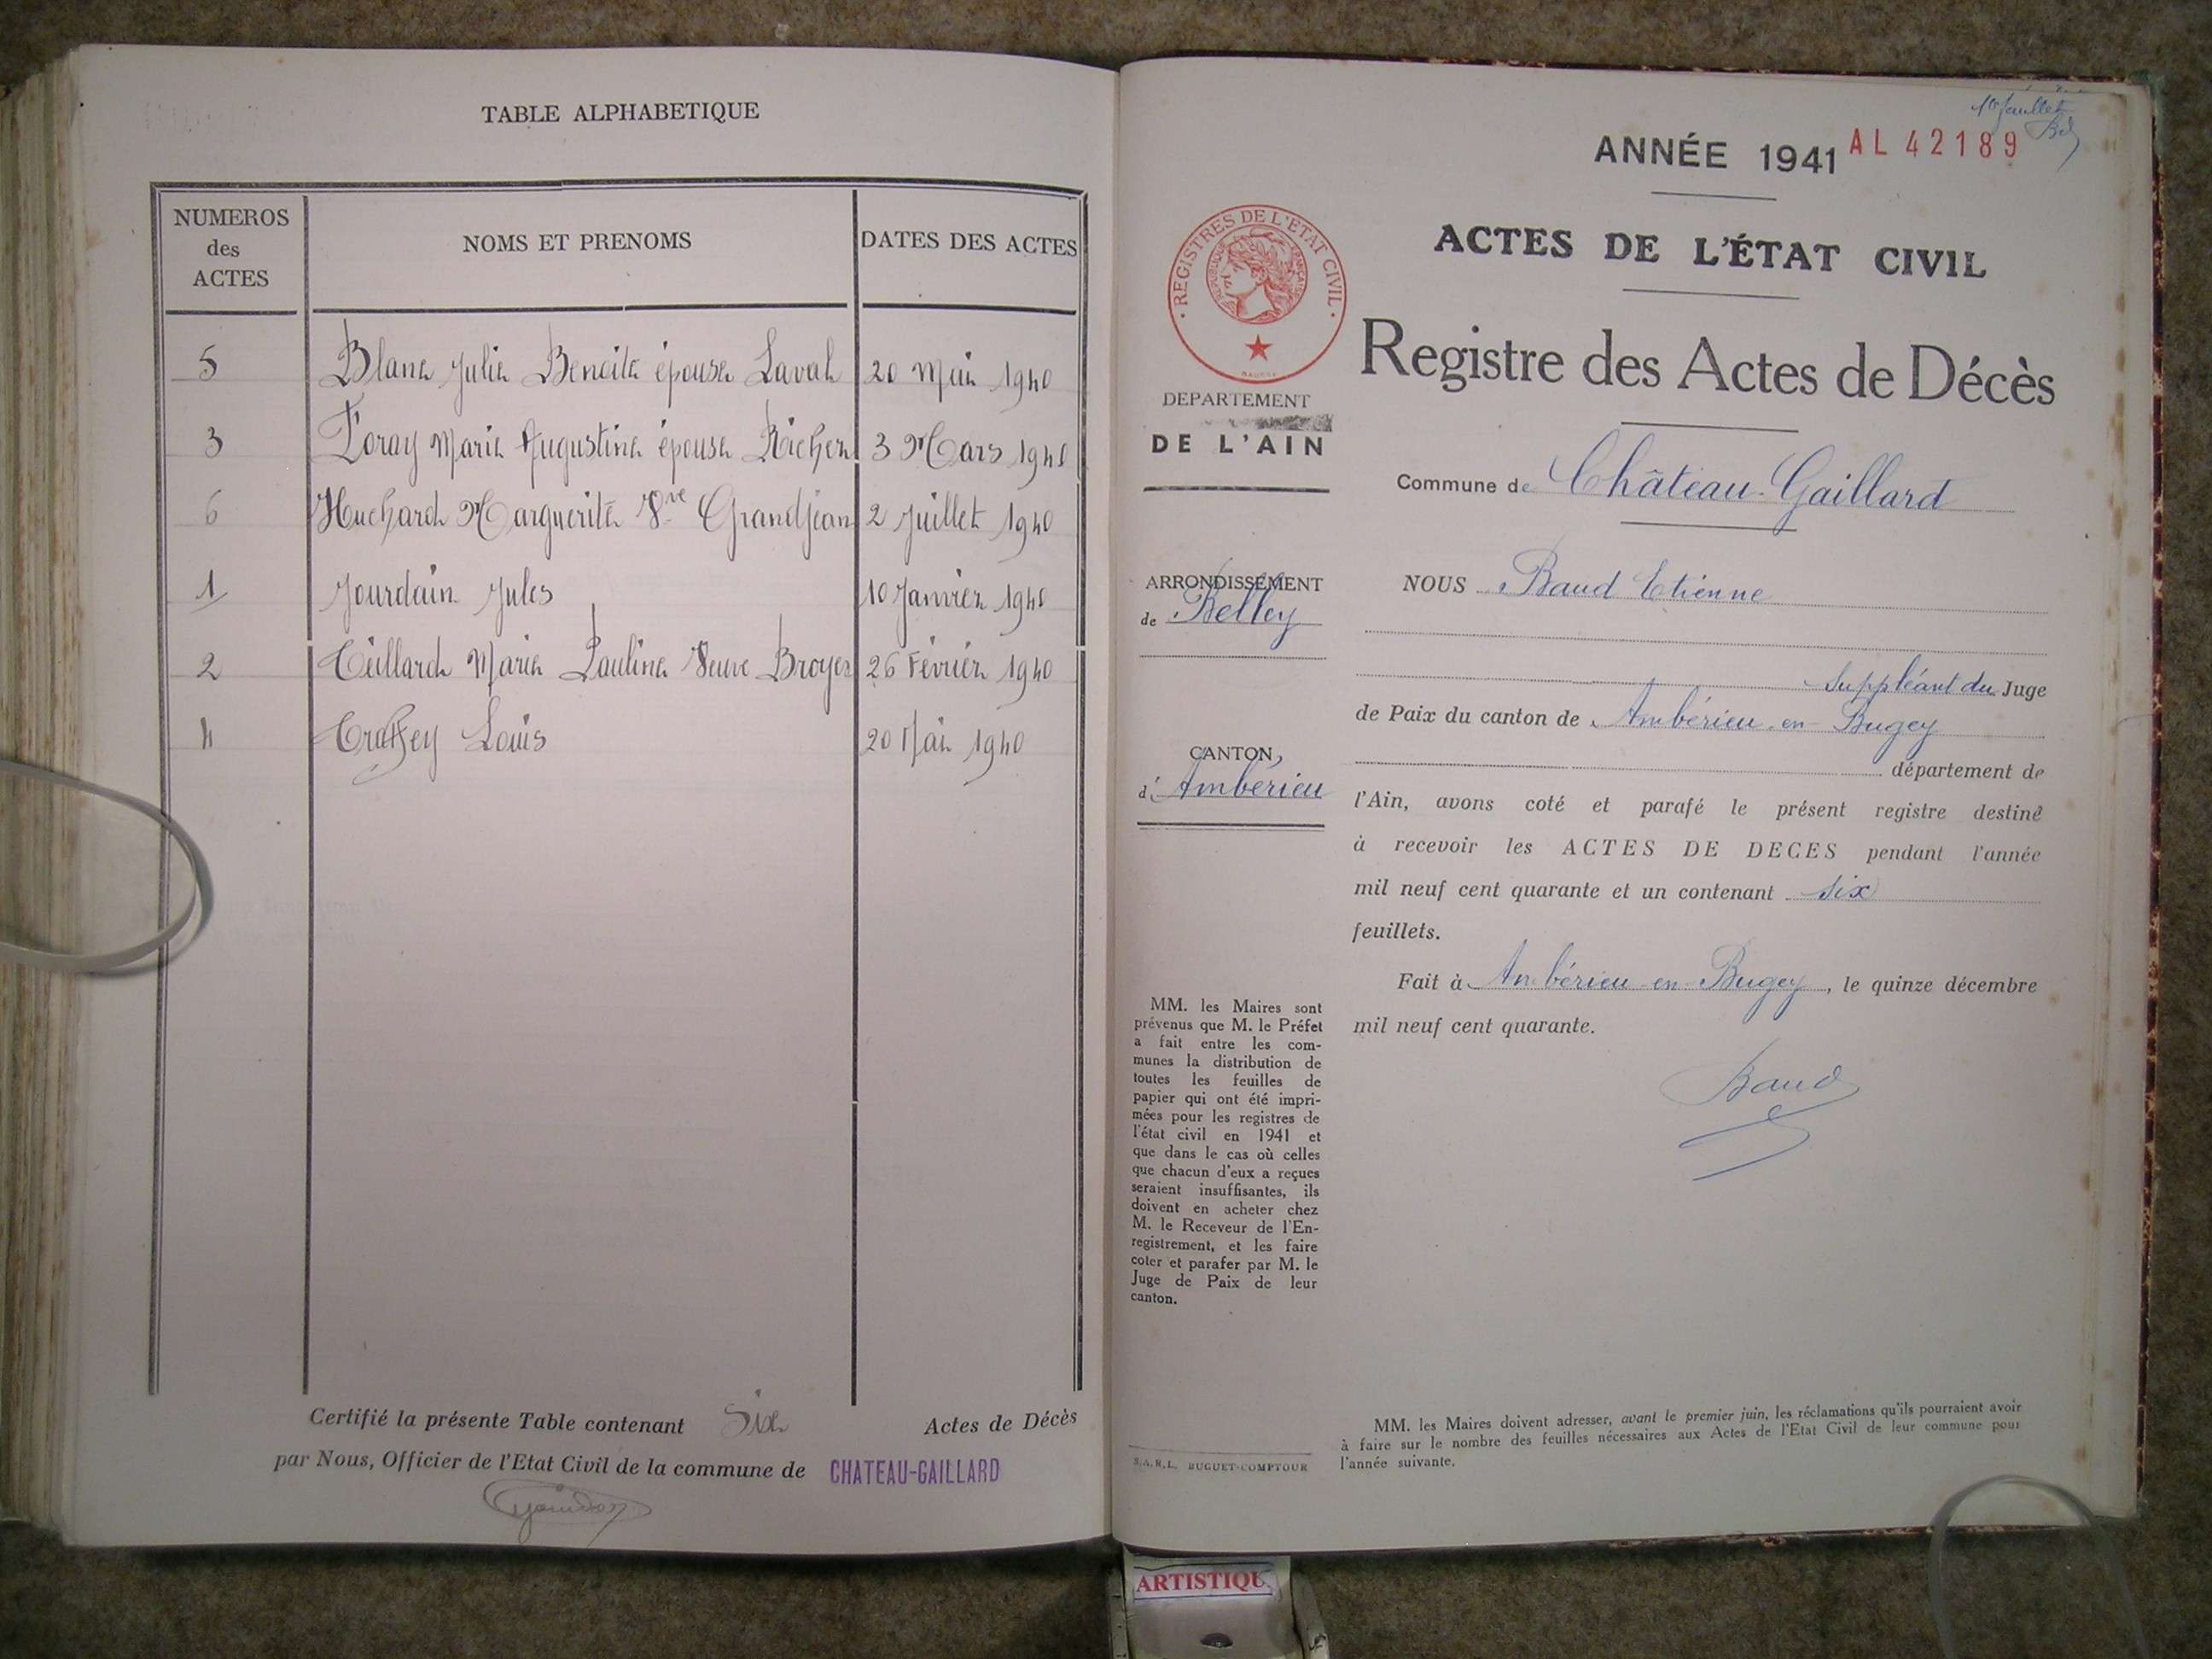 TABLE ALPHABETIQUE
NUMEROS des ACTES
NOMS ET PRENOMS
DATES DES ACTES
5 Blanc Julie Benoite épouse Laval 20 Mai 1940
3 Foray Marie Augustine épouse Richer 3 Mars 1940
6 Huchard Marguerite Vve Grandjean 2 Juillet 1940
1 Jourdain Jules 10 Janvier 1940
2 Marie Pauline Veuve Broyer 26 Février 1940
4 Louis 20 Mai 1940
Certifié la présente Table contenant Six Actes de Décès
par Nous, Officier de l'Etat Civil de la commune de CHATEAU-GAILLARD
1er feuillet
Bd
ANNÉE 1941 AL 42189
ACTES DE L'ÉTAT CIVIL
Registre des Actes de Décès
Commune de Château-Gaillard
· REGISTRES DE L'ETAT CIVIL ·
REPUBLIQUE FRANÇAISE
DEPARTEMENT
DE L'AIN
ARRONDISSEMENT
de Belley
CANTON
d' Ambérieu
MM. les Maires sont
prévenus que M. le Préfet
a fait entre les com-
munes la distribution de
toutes les feuilles de
papier qui ont été impri-
mées pour les registres de
l'état civil en 1941 et
que dans le cas où celles
que chacun d'eux a reçues
seraient insuffisantes, ils
doivent en acheter chez
M. le Receveur de l'En-
registrement, et les faire
coter et parafer par M. le
Juge de Paix de leur
canton.
S.A.R.L. BUGUET-COMPTOUR
NOUS Baud Etienne
Suppléant du Juge
de Paix du canton de Ambérieu-en-Bugey
département de
l'Ain, avons coté et parafé le présent registre destiné
à recevoir les ACTES DE DECES pendant l'année
mil neuf cent quarante et un contenant six
feuillets.
Fait à Ambérieu-en-Bugey, le quinze décembre
mil neuf cent quarante.
Baud
MM. les Maires doivent adresser, avant le premier juin, les réclamations qu'ils pourraient avoir
à faire sur le nombre des feuilles nécessaires aux Actes de l'Etat Civil de leur commune pour
l'année suivante.
ARTISTIQU